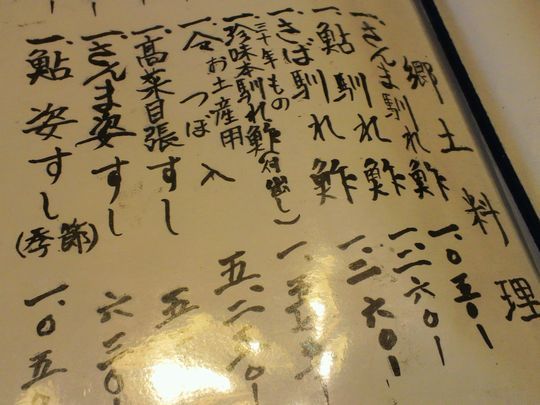 郷土料理
一、さんま馴れ鮓 一、〇五〇ー
一、鮎馴れ鮓 一、二六〇ー
一、さば馴れ鮓 一、二六〇ー
三十年もの
一、珍味本馴れ鮓(付出し) 一、
一、仝 お土産用 つぼ入 五、二五〇ー
一、高菜目張すし 五
一、さんま姿すし 六三〇ー
一、鮎姿すし(季節) 一、〇五